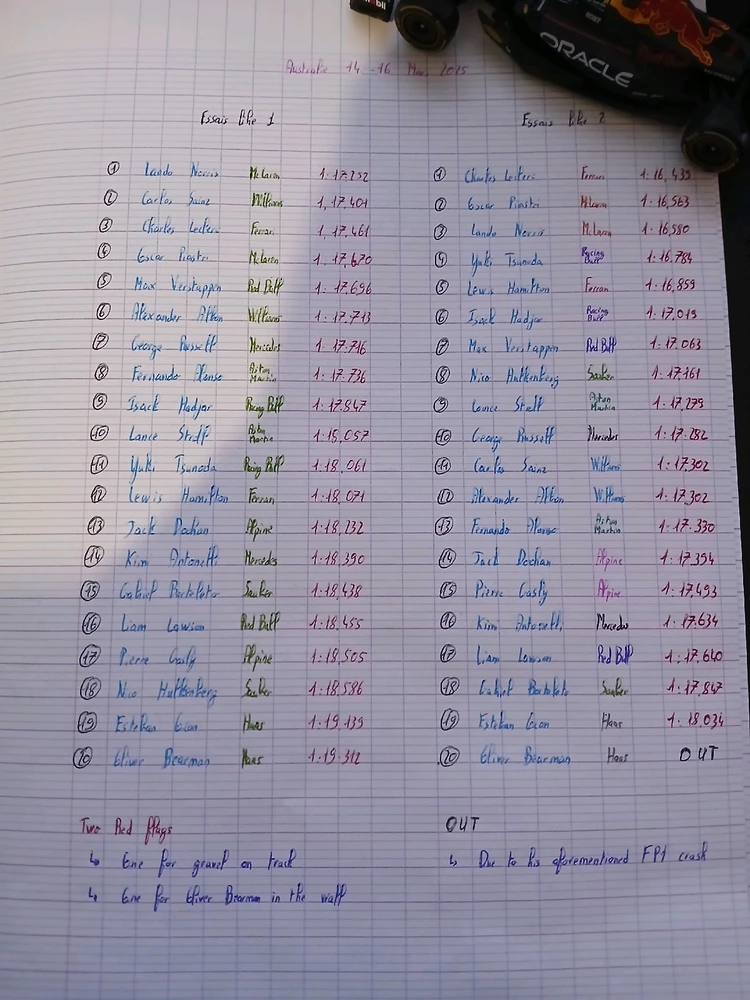 mobil
ORACLE
Australie 14 - 16 Mars 2015
Essais libre 1
① Lando Norris McLaren 1:17.252
② Carlos Sainz Williams 1,17,401
③ Charles Leclerc Ferrari 1,17,461
④ Oscar Piastri McLaren 1,17,670
⑤ Max Verstappen Red Bull 1:17.696
⑥ Alexander Albon Williams 1:17.713
⑦ George Russell Mercedes 1:17.716
⑧ Fernando Alonso Aston Martin 1:17.736
⑨ Isack Hadjar Racing Bull 1:17.847
⑩ Lance Stroll Aston Martin 1:15,057
⑪ Yuki Tsunoda Racing Bull 1:18,061
⑫ Lewis Hamilton Ferrari 1:18,071
⑬ Jack Doohan Alpine 1:18,232
⑭ Kimi Antonelli Mercedes 1:18,390
⑮ Gabriel Bortoleto Sauber 1:18,438
⑯ Liam Lawson Red Bull 1:18,455
⑰ Pierre Gasly Alpine 1:18,505
⑱ Nico Hulkenberg Sauber 1:18,586
⑲ Esteban Ocon Haas 1:19,139
⑳ Oliver Bearman Haas 1:19.312
Two Red flags
↳ One for gravel on track
↳ One for Oliver Bearman in the wall
Essais libre 2
① Charles Leclerc Ferrari 1:16,439
② Oscar Piastri McLaren 1:16,563
③ Lando Norris McLaren 1:16,580
④ Yuki Tsunoda Racing Bull 1:16.784
⑤ Lewis Hamilton Ferrari 1:16,859
⑥ Isack Hadjar Racing Bull 1:17,013
⑦ Max Verstappen Red Bull 1:17.063
⑧ Nico Hulkenberg Sauber 1:17,161
⑨ Lance Stroll Aston Martin 1:17,279
⑩ George Russell Mercedes 1:17.282
⑪ Carlos Sainz Williams 1:17.302
⑫ Alexander Albon Williams 1:17.302
⑬ Fernando Alonso Aston Martin 1:17.330
⑭ Jack Doohan Alpine 1:17.394
⑮ Pierre Gasly Alpine 1:17.493
⑯ Kimi Antonelli Mercedes 1:17.634
⑰ Liam Lawson Red Bull 1:17,640
⑱ Gabriel Bortoleto Sauber 1:17,847
⑲ Esteban Ocon Haas 1:18.034
⑳ Oliver Bearman Haas OUT
OUT
↳ Due to his aforementioned FP1 crash